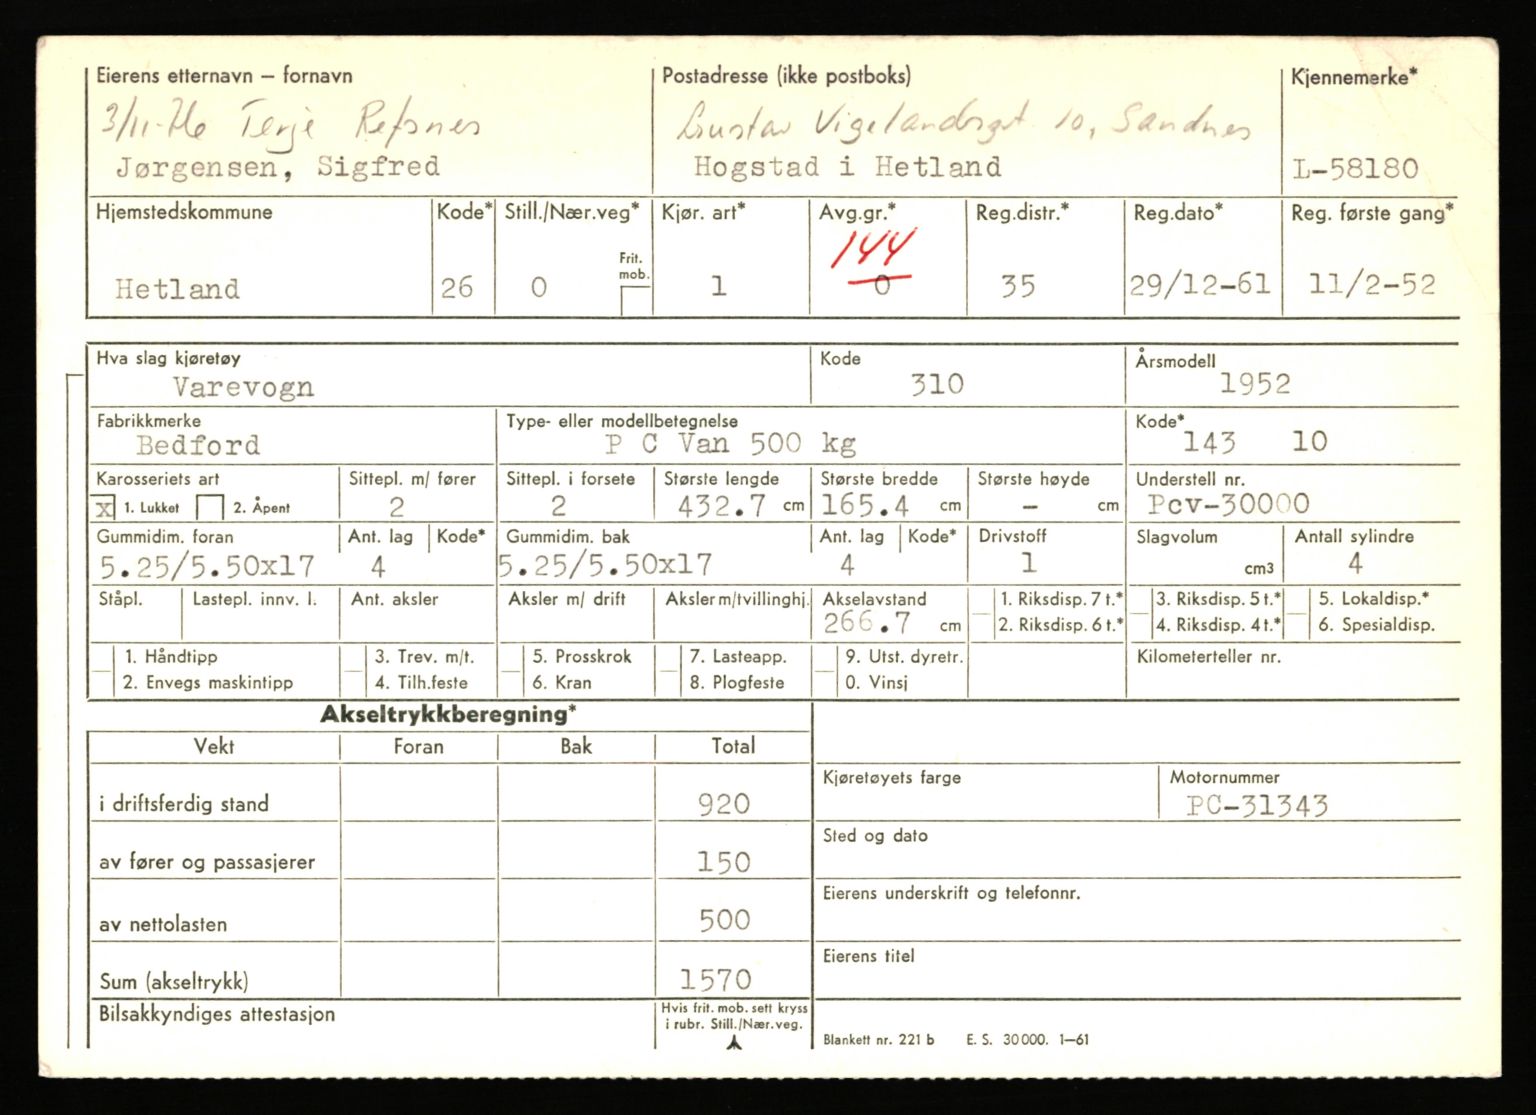 Eierens etternavn – fornavn Postadresse (ikke postboks) Kjennemerke*
3/11-76 Terje Refsnes Gustav Vigelandsgt 10, Sandnes
Jørgensen, Sigfred Hogstad i Hetland L-58180
Hjemstedskommune Kode* Still./Nær.veg* Kjør. art* Avg.gr.* Reg.distr.* Reg.dato* Reg. første gang*
144
Frit.
mob.
Hetland 26 0 1 0 35 29/12-61 11/2-52
Hva slag kjøretøy Kode Årsmodell
Varevogn 310 1952
Fabrikkmerke Type- eller modellbetegnelse Kode*
Bedford P C Van 500 kg 143 10
Karosseriets art Sittepl. m/ fører Sittepl. i forsete Største lengde Største bredde Største høyde Understell nr.
x 1. Lukket 2. Åpent 2 2 432.7 cm 165.4 cm - cm Pcv-30000
Gummidim. foran Ant. lag Kode* Gummidim. bak Ant. lag Kode* Drivstoff Slagvolum Antall sylindre
5.25/5.50x17 4 5.25/5.50x17 4 1 cm3 4
Ståpl. Lastepl. innv. l. Ant. aksler Aksler m/ drift Aksler m/tvillinghj. Akselavstand 1. Riksdisp. 7 t.* 3. Riksdisp. 5 t.* 5. Lokaldisp.*
266.7 cm 2. Riksdisp. 6 t.* 4. Riksdisp. 4 t.* 6. Spesialdisp.
1. Håndtipp 3. Trev. m/t. 5. Prosskrok 7. Lasteapp. 9. Utst. dyretr. Kilometerteller nr.
2. Envegs maskintipp 4. Tilh.feste 6. Kran 8. Plogfeste 0. Vinsj
Akseltrykkberegning*
Vekt Foran Bak Total
Kjøretøyets farge Motornummer
i driftsferdig stand 920 PC-31343
Sted og dato
av fører og passasjerer 150
Eierens underskrift og telefonnr.
av nettolasten 500
Eierens titel
Sum (akseltrykk) 1570
Bilsakkyndiges attestasjon Hvis frit. mob. sett kryss
i rubr. Still./Nær.veg.
Blankett nr. 221 b E. S. 30 000. 1–61